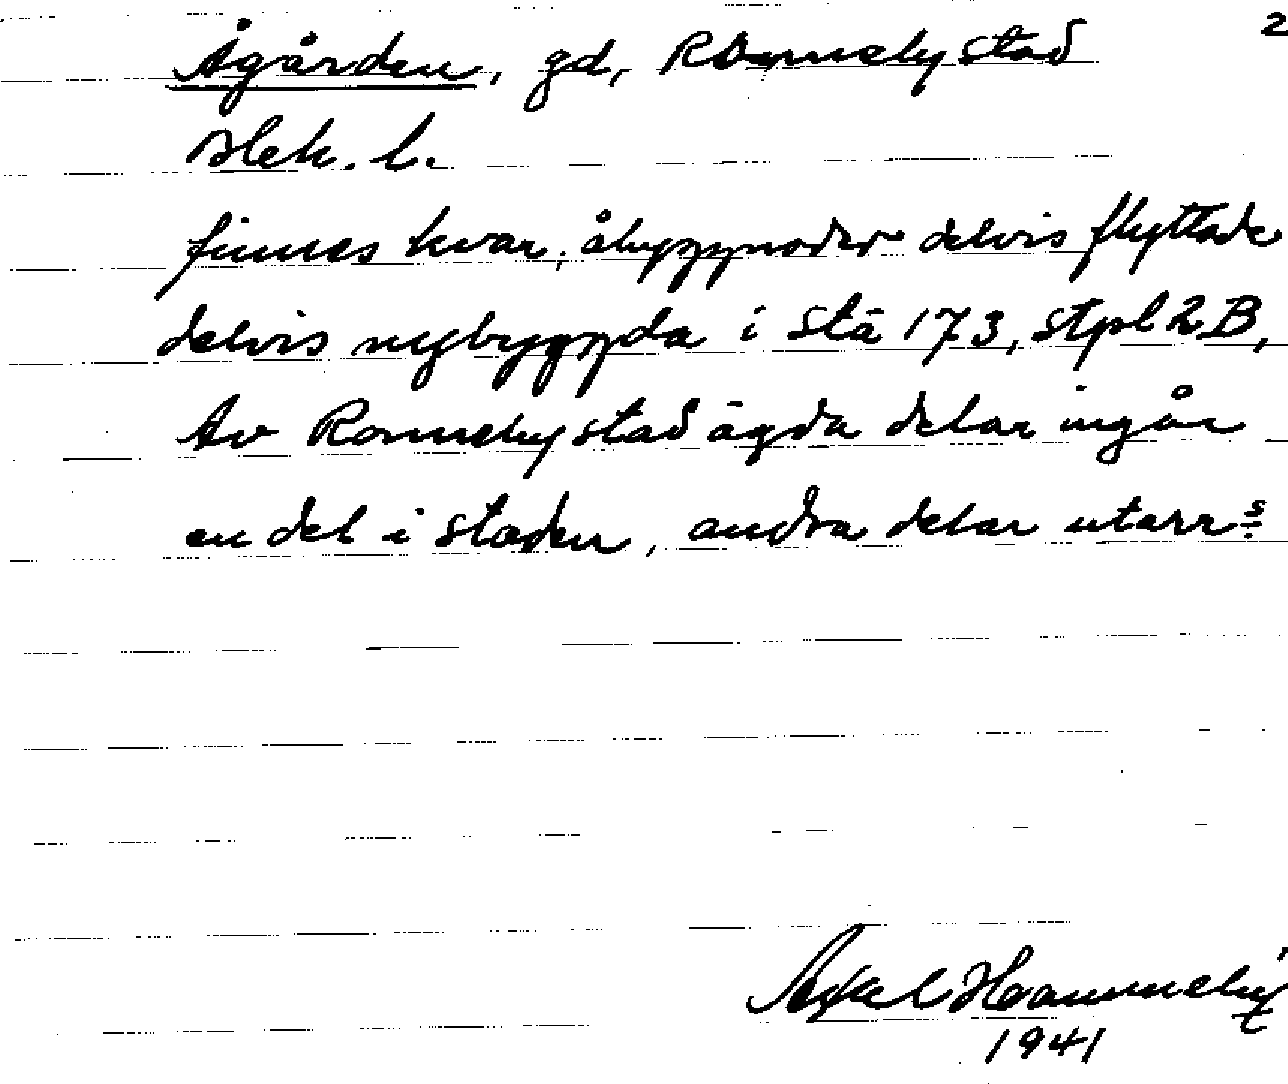 2
Ågården, gd, Ronneby stad
Blek. l.
finnes kvar, åbyggnader delvis flyttade
delvis nybyggda i stä 173, stpl 2 B,
Av Ronneby stad ägda delar ingår
en del i staden, andra delar utarr s:
Axel Hammeby
1941